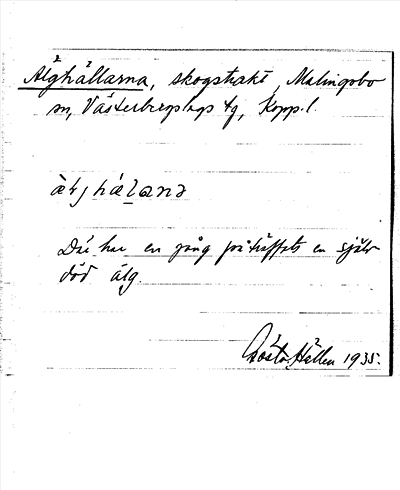 Älghällarna, skogstrakt, Malingsbo
sn, Västerbergslags tg, Kopp. l.
Där har en gång påträffats en själv-
död älg.
Gösta Hällen 1935.